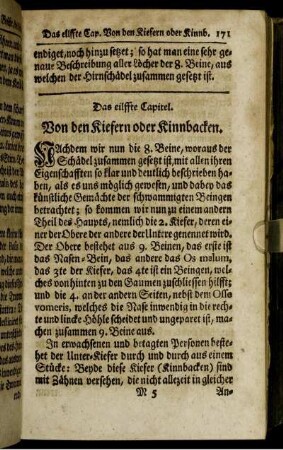 Das eilffte Cap. Von den Kiefern oder Kinnb. 171
endiget, noch hinzu setzet; so hat man eine sehr ge-
naue Beschreibung aller Löcher der 8. Beine, aus
welchen der Hirnschädel zusammen gesetzt ist.
Das eilffte Capitel.
Von den Kiefern oder Kinnbacken.
NAchdem wir nun die 8. Beine, woraus der
Schädel zusammen gesetzt ist, mit allen ihren
Eigenschafften so klar und deutlich beschrieben ha-
ben, als es uns möglich gewesen, und dabey das
künstliche Gemächte der schwammigten Beingen
betrachtet; so kommen wir nun zu einem andern
Theil des Haupts, nemlich die 2. Kiefer, deren ei-
ner der Obere der andere der Untere genennet wird.
Der Obere bestehet aus 9. Beinen, das erste ist
das Nasen-Bein, das andere das Os malum,
das 3te der Kiefer, das 4te ist ein Beingen, welches
von hinten zu den Gaumen zuschliessen hilfft;
und die 4. an der andern Seiten, nebst dem Osse
vomeris, welches die Nase inwendig in die rech-
te und lincke Höhle scheidet und ungeparet ist, ma-
chen zusammen 9. Beine aus.
In erwachsenen und betagten Personen beste-
het der Unter-Kiefer durch und durch aus einem
Stücke: Beyde diese Kiefer (Kinnbacken) sind
mit Zähnen versehen, die nicht allezeit in gleicher
M 5 An-